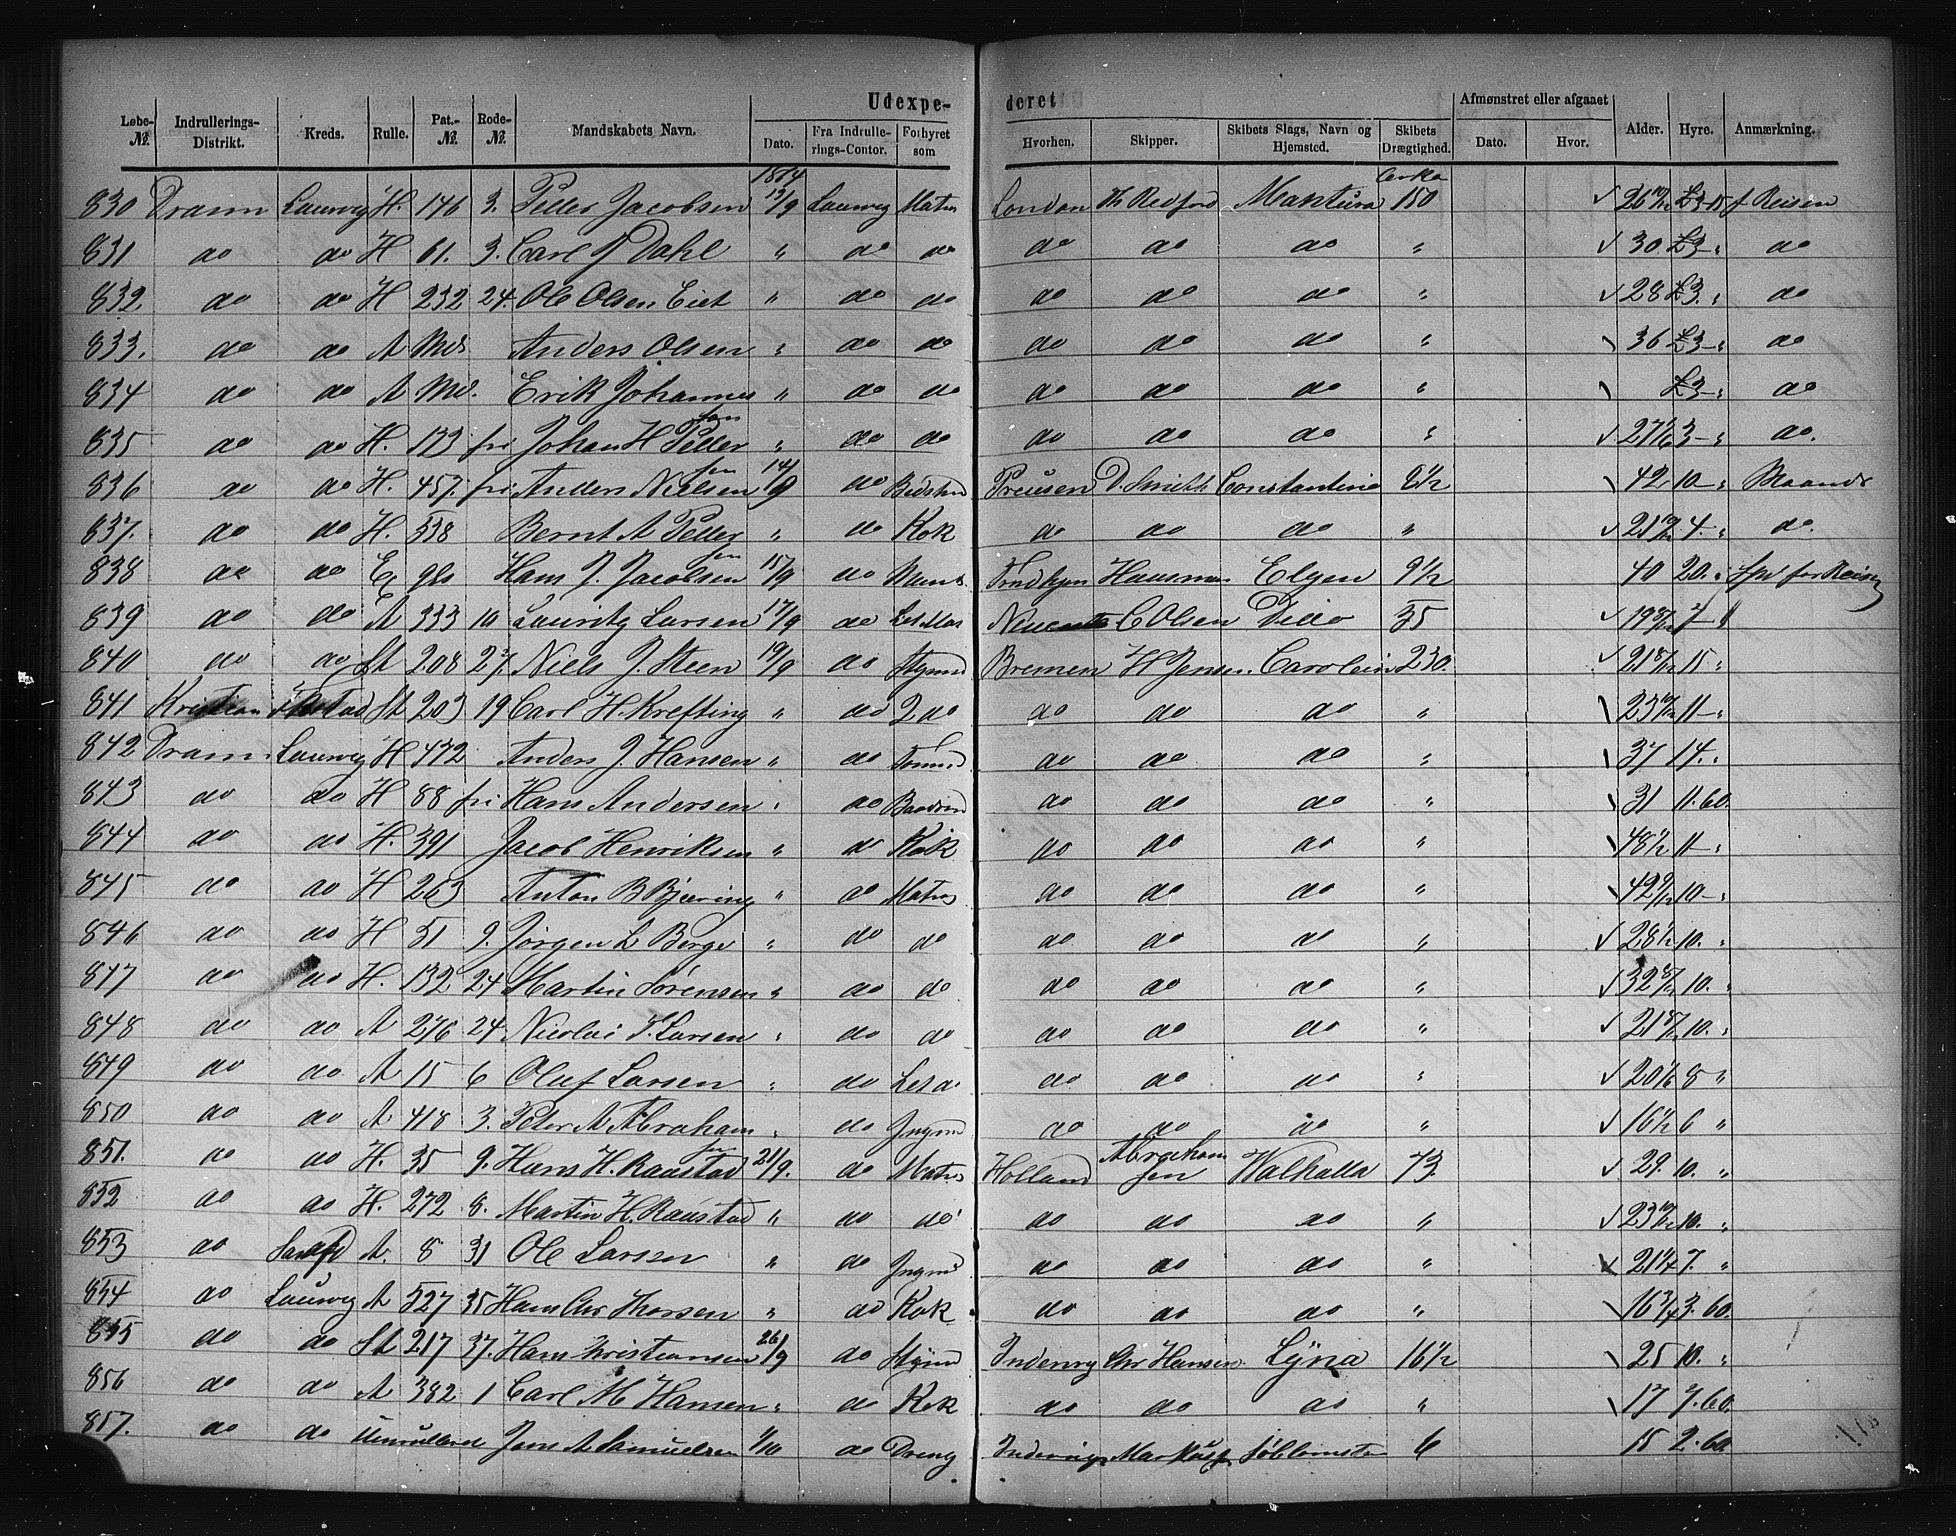 Udexpe- deret
Løbe- № Indrullerings- Distrikt. Kreds. Rulle. Pat.- № Rode- № Mandskabets Navn. Dato. Fra Indrulle- rings-Contor. Forhyret som Hvorhen. Skipper. Skibets Slags, Navn og Hjemsted. Skibets Drægtighed. Afmønstret eller afgaaet Dato. Hvor. Alder. Hyre. Anmærkning.
1874
830 Dram Laurvig H. 146 3. Peder Jacobsen 13/9 Laurvig Matr London Th Redford Mantura 150 £3-15 f. Reisen
831 do do H 61. 3. Carl J Dahl " do do do do do " 30. £3-" do
832. do do H 232 24. Ole Olsen Eiet " do do do do do " 28 £3." do
833. do do A Md. Anders Olsen " do do do do do " 36 £3-" do
834 do do A Md. Erik Johannes sen " do do do do do " £3-" do
835 do do H. 123 fri Johan H Peder sen " do do do do do " 3-" do.
836 do do H. 457. fri Anders Nielsen 14/9 do Bedstm Preusen D. Smith Constantine 6 1/2 42. 10-" Maaned
837. do do H. 538 Bernt A Peder sen " do Kok do do do " 4." do.
838 do do E. gls Hans J. Jacobsen 15/9 do Hausman Elgen 9 1/2 40 20." for Reisen
839 do do A 333 10 Lauritz Larsen 17/9 do C Olsen 35 7-"
840 do do St 208 27. Niels J. Steen 19/9 do Styrmd Bremen H Jensen Carolein 230. 15 "
841 Kristian St 203 19 Carl H. Krefting " do 2 do do do do " 11-"
842 Dram. Laurvig H 472 Anders J. Hansen " do Tømmd do do do " 37 14."
843 do do H 88 fri Hans Andersen " do do do do " 31 11.60.
844 do do H. 391 Jacob Henriksen " do Kok do do do " 48 1/2 11-"
845 do do H 263 Anton B Bjerring " do Matr do do do " 10-"
846 do do H 51 9. Jørgen L Berge " do do do do do " 28 1/2 10. "
847 do do H. 132 24 Martin Sørensen " do do do do do " 10. "
848 do do A 276 24 Nicolai T. Larsen " do do do do do " 10. "
849 do do A 15 6 Oluf Larsen " do Let d do do do " 20 1/6 8 "
850 do do A 418 3. Peter A Abraham sen " do Jngmd do do do " 16 1/2 6 "
851. do do H. 35 9. Hans H. Raastad 21/9. do Matr Holland Abraham sen Walhalla 73. 29. 10. "
852 do do H. 272 8. Martin H. Raastad " do do do do do " 10. "
853 do A. 8 31 Ole Larsen " do Jngmd do do do " 21 1/4 7. "
854 do Laurvig A 527 35 Hans Chr Thorsen " do Kok do do do " 16 3/4 3.60.
855 do do St 217 37. Hans Kristiansen 26/9 do Styrmd Indenrig Chr Hansen Lyna 16 1/2 25 10. "
856 do do A 382 1 Carl M Hansen " do Kok do do do " 17 7.60.
857. do do Uinrulleret Jens A Samuelsen 1/10 do Dreng Indenrigs 6 15 2.60